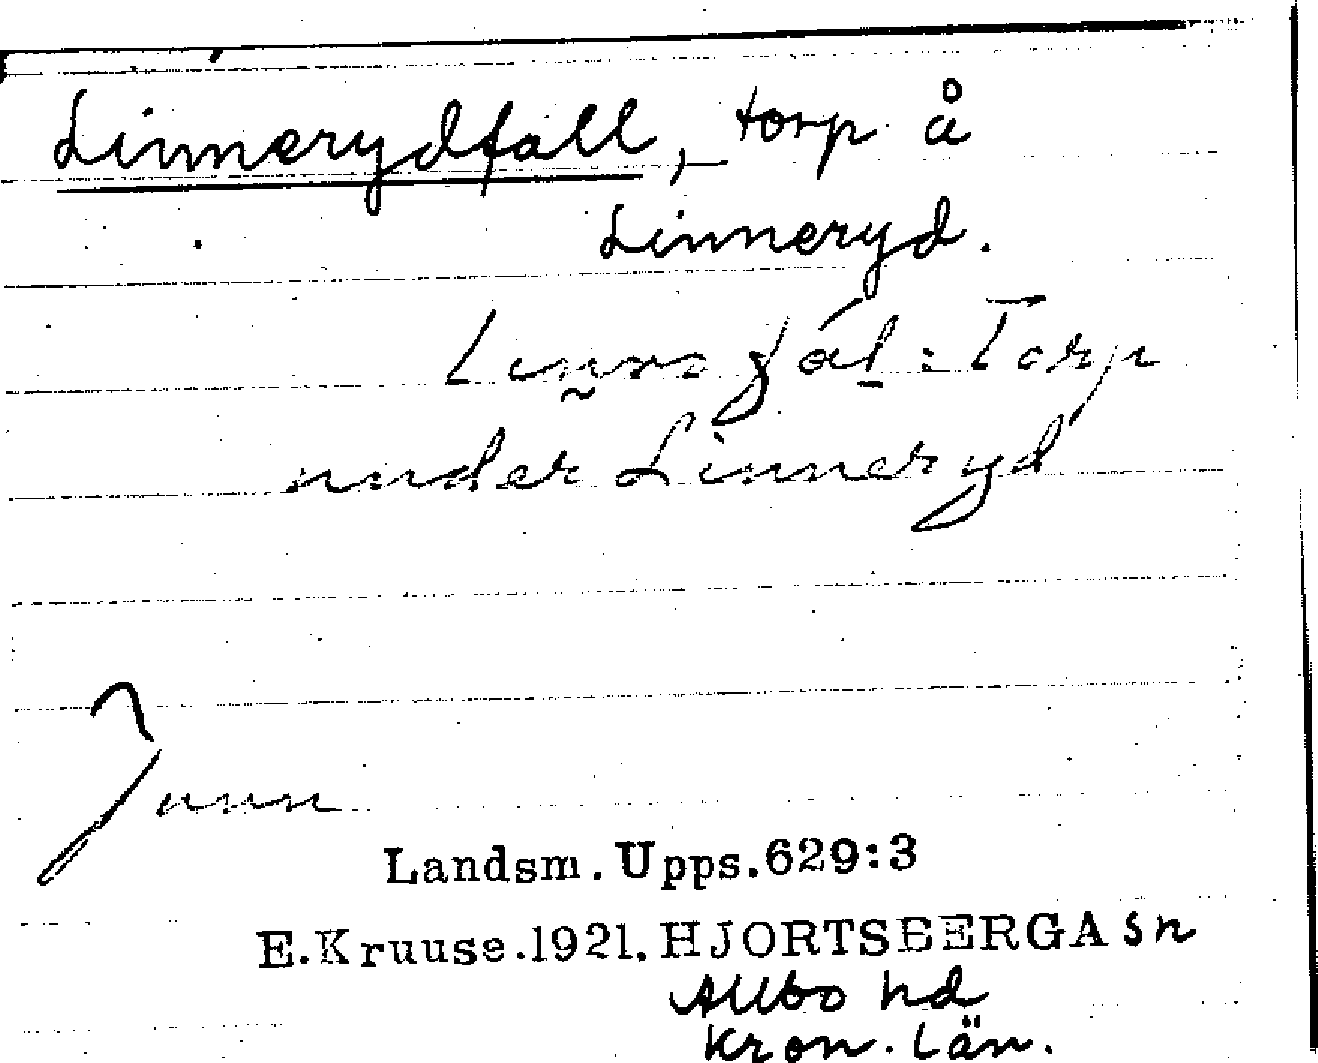 Linnerydfall, torp å
Linneryd.
: Torp
under Linneryd
Landsm. Upps. 629:3
E. Kruuse. 1921. HJORTSBERGA sn
Allbo hd
Kron. län.